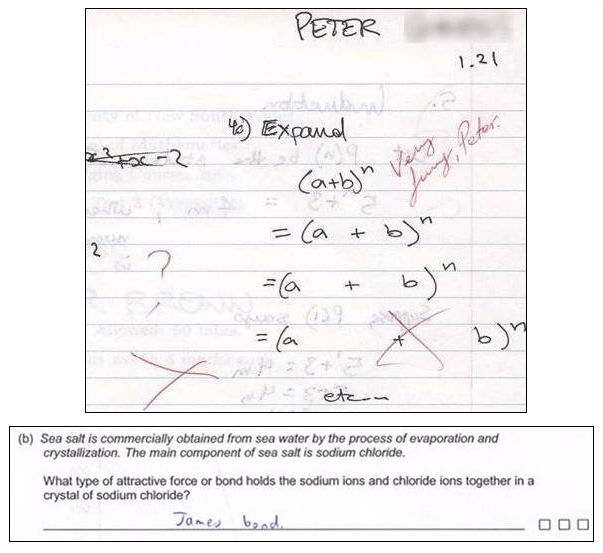 PETER
1.21
4c) Expand
(a+b)ⁿ
Very funny, Peter.
= (a + b)ⁿ
2
?
= (a + b)ⁿ
= (a + b)ⁿ
etc...
(b) Sea salt is commercially obtained from sea water by the process of evaporation and
crystallization. The main component of sea salt is sodium chloride.
What type of attractive force or bond holds the sodium ions and chloride ions together in a
crystal of sodium chloride?
James bond.